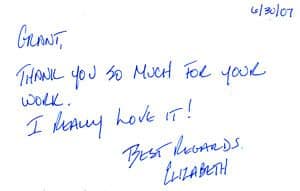 6/30/07
GRANT,
THANK YOU SO MUCH FOR YOUR
WORK.
I REALLY LOVE IT!
BEST REGARDS.
ELIZABETH